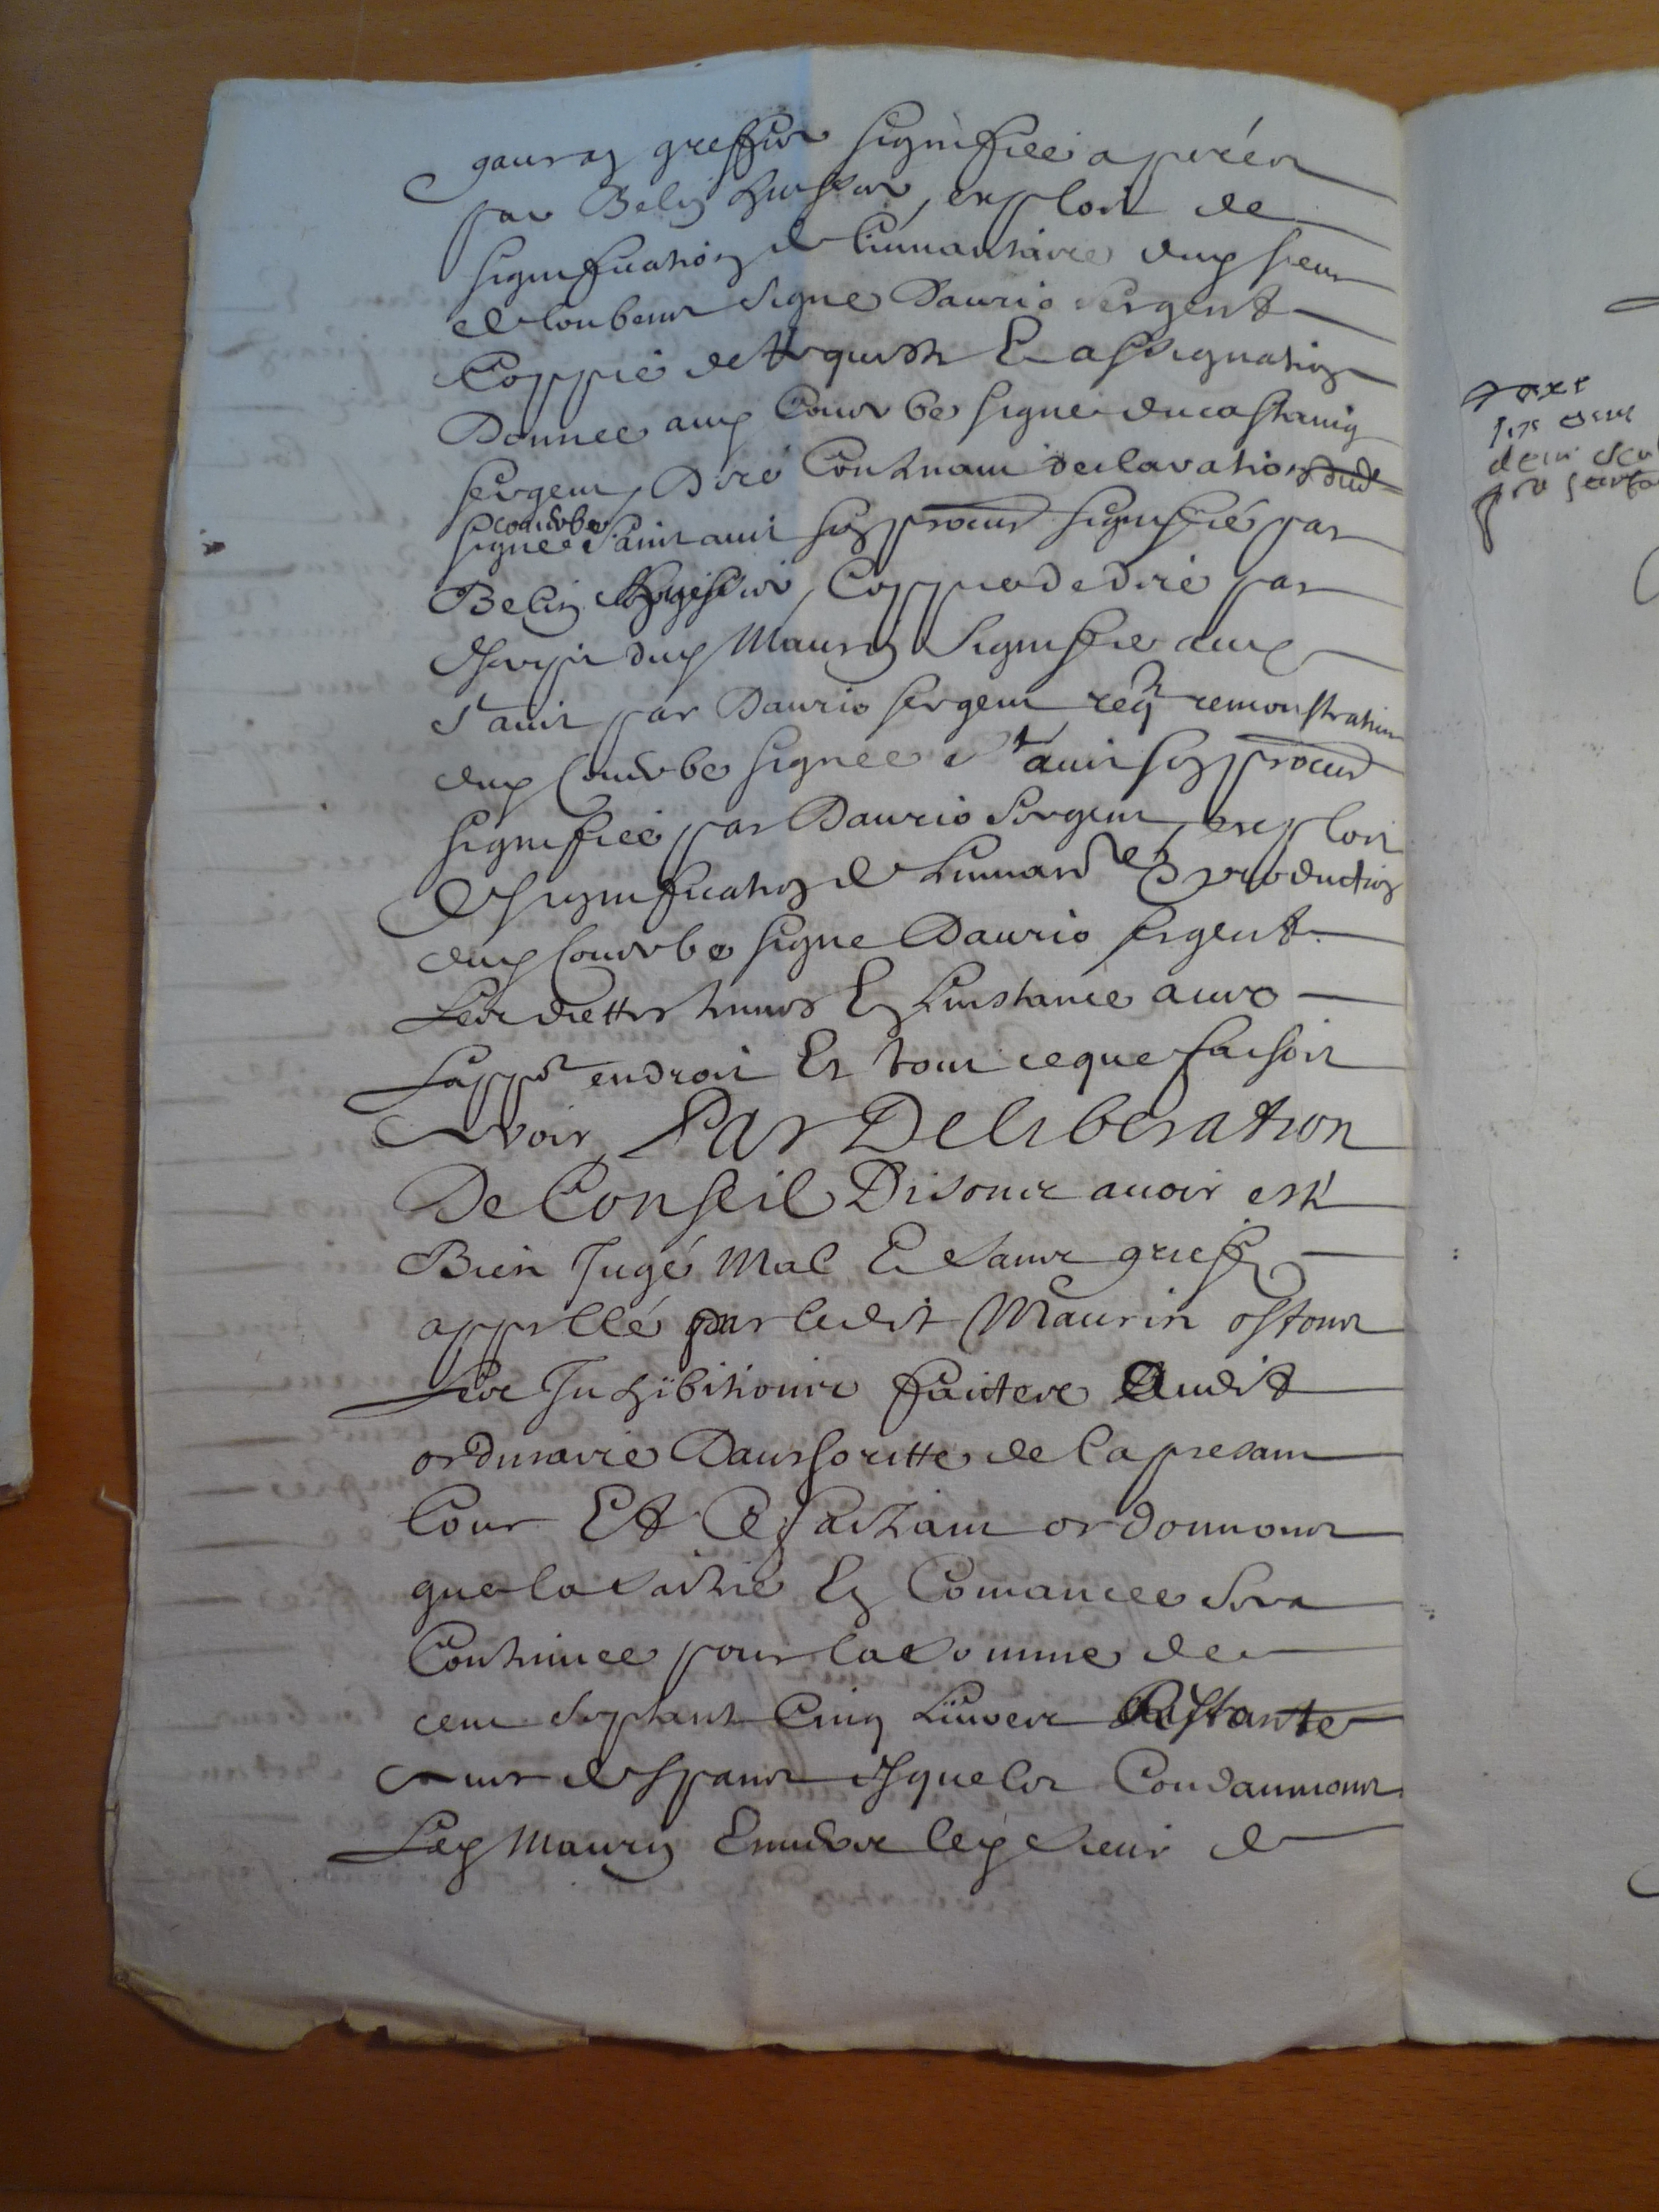 gauran greffier signiffiée a prén
par Belin huissier, exploit de
signiffication de linvantaire dup sieur
de loubens signe Daurio sergent
Coppie de requeste Et assignation
Donnee aup Courbe signe ducastaing
sergent, Diré Contenant declaration dud
courbe
signee Saint auit son procur signiffié par
Belin huissier, Coppie de diré par
escript dup Maurin signiffie aup
St auit par Daurio sergent reqte remonstrative
dup Courbe signee St auit son procur
signiffiée par Daurio sergent, exploit
de signiffication de linvantre Et production
dup Courbe signe Daurio sergent
Les dettes tenus En linstance avec
Lappnt endroit Et tout ce que faisoit
a voir, Par Deliberation
De Conseil Disons avoir esté
Bien Jugé Mal Et sans grief
appellé par ledit Maurin ostons
Les Inhibitions faictes audit
ordinaire Dauthoritte de la presant
Cour Et Ce faisant ordonnons
que la saisie En Comancee sera
Continuee pour la somme de
cent septante Cinq Livres Restante
Et aux despans esquels Condamnons
Lep Maurin Envers lep sieur de
taxé